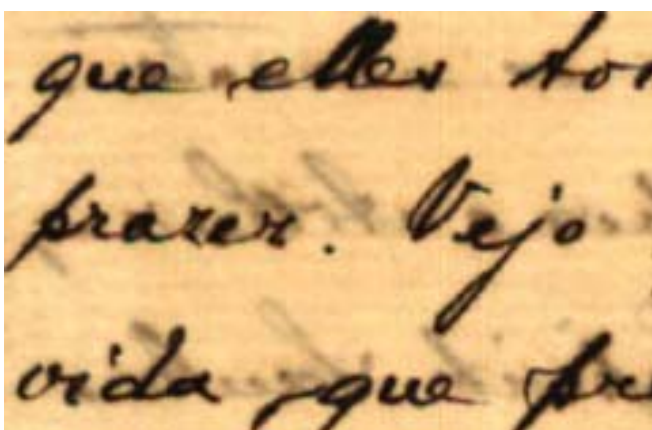 que elles
prazer. Vejo
vida, que